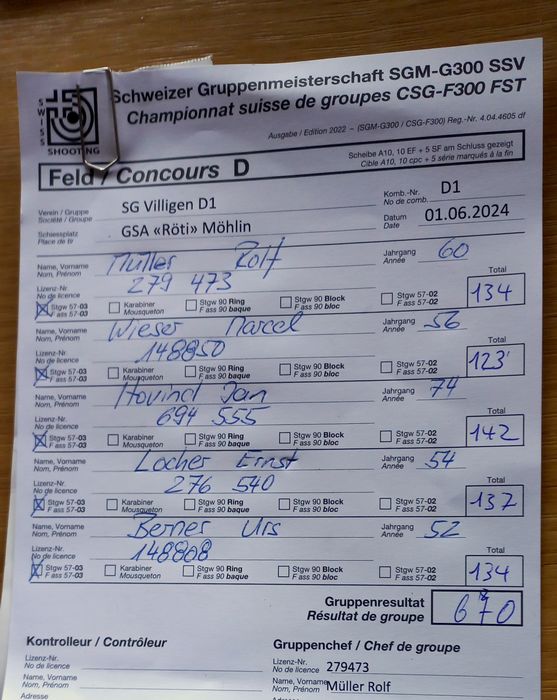 SWISS
SHOOTING
Schweizer Gruppenmeisterschaft SGM-G300 SSV
Championnat suisse de groupes CSG-F300 FST
Ausgabe / Edition 2022 – (SGM-G300 / CSG-F300) Reg.-Nr. 4.04.4605 df
Feld / Concours D
Scheibe A10, 10 EF + 5 SF am Schluss gezeigt
Cible A10, 10 cpc + 5 série marqués à la fin
Verein / Gruppe SG Villigen D1 Komb.-Nr. D1
Société / Groupe No de comb.
Schiessplatz GSA «Röti» Möhlin Datum 01.06.2024
Place de tir Date
Name, Vorname Müller Rolf Jahrgang 60
Nom, Prénom Année
Lizenz-Nr. 279 473 Total
No de licence 134
Stgw 57-03 Karabiner Stgw 90 Ring Stgw 90 Block Stgw 57-02
F ass 57-03 Mousqueton F ass 90 baque F ass 90 bloc F ass 57-02
Name, Vorname Wieser Marcel Jahrgang 56
Nom, Prénom Année
Lizenz-Nr. 148850 Total
No de licence 123
Stgw 57-03 Karabiner Stgw 90 Ring Stgw 90 Block Stgw 57-02
F ass 57-03 Mousqueton F ass 90 baque F ass 90 bloc F ass 57-02
Name, Vorname Hovind Jan Jahrgang 74
Nom, Prénom Année
Lizenz-Nr. 694 555 Total
No de licence 142
Stgw 57-03 Karabiner Stgw 90 Ring Stgw 90 Block Stgw 57-02
F ass 57-03 Mousqueton F ass 90 baque F ass 90 bloc F ass 57-02
Name, Vorname Locher Ernst Jahrgang 54
Nom, Prénom Année
Lizenz-Nr. 276 540 Total
No de licence 137
Stgw 57-03 Karabiner Stgw 90 Ring Stgw 90 Block Stgw 57-02
F ass 57-03 Mousqueton F ass 90 baque F ass 90 bloc F ass 57-02
Name, Vorname Berner Urs Jahrgang 52
Nom, Prénom Année
Lizenz-Nr. 148808 Total
No de licence 134
Stgw 57-03 Karabiner Stgw 90 Ring Stgw 90 Block Stgw 57-02
F ass 57-03 Mousqueton F ass 90 baque F ass 90 bloc F ass 57-02
Gruppenresultat 670
Résultat de groupe
Kontrolleur / Contrôleur Gruppenchef / Chef de groupe
Lizenz-Nr. Lizenz-Nr. 279473
No de licence No de licence
Name, Vorname Name, Vorname Müller Rolf
Nom, Prénom Nom, Prénom
Adresse Adresse